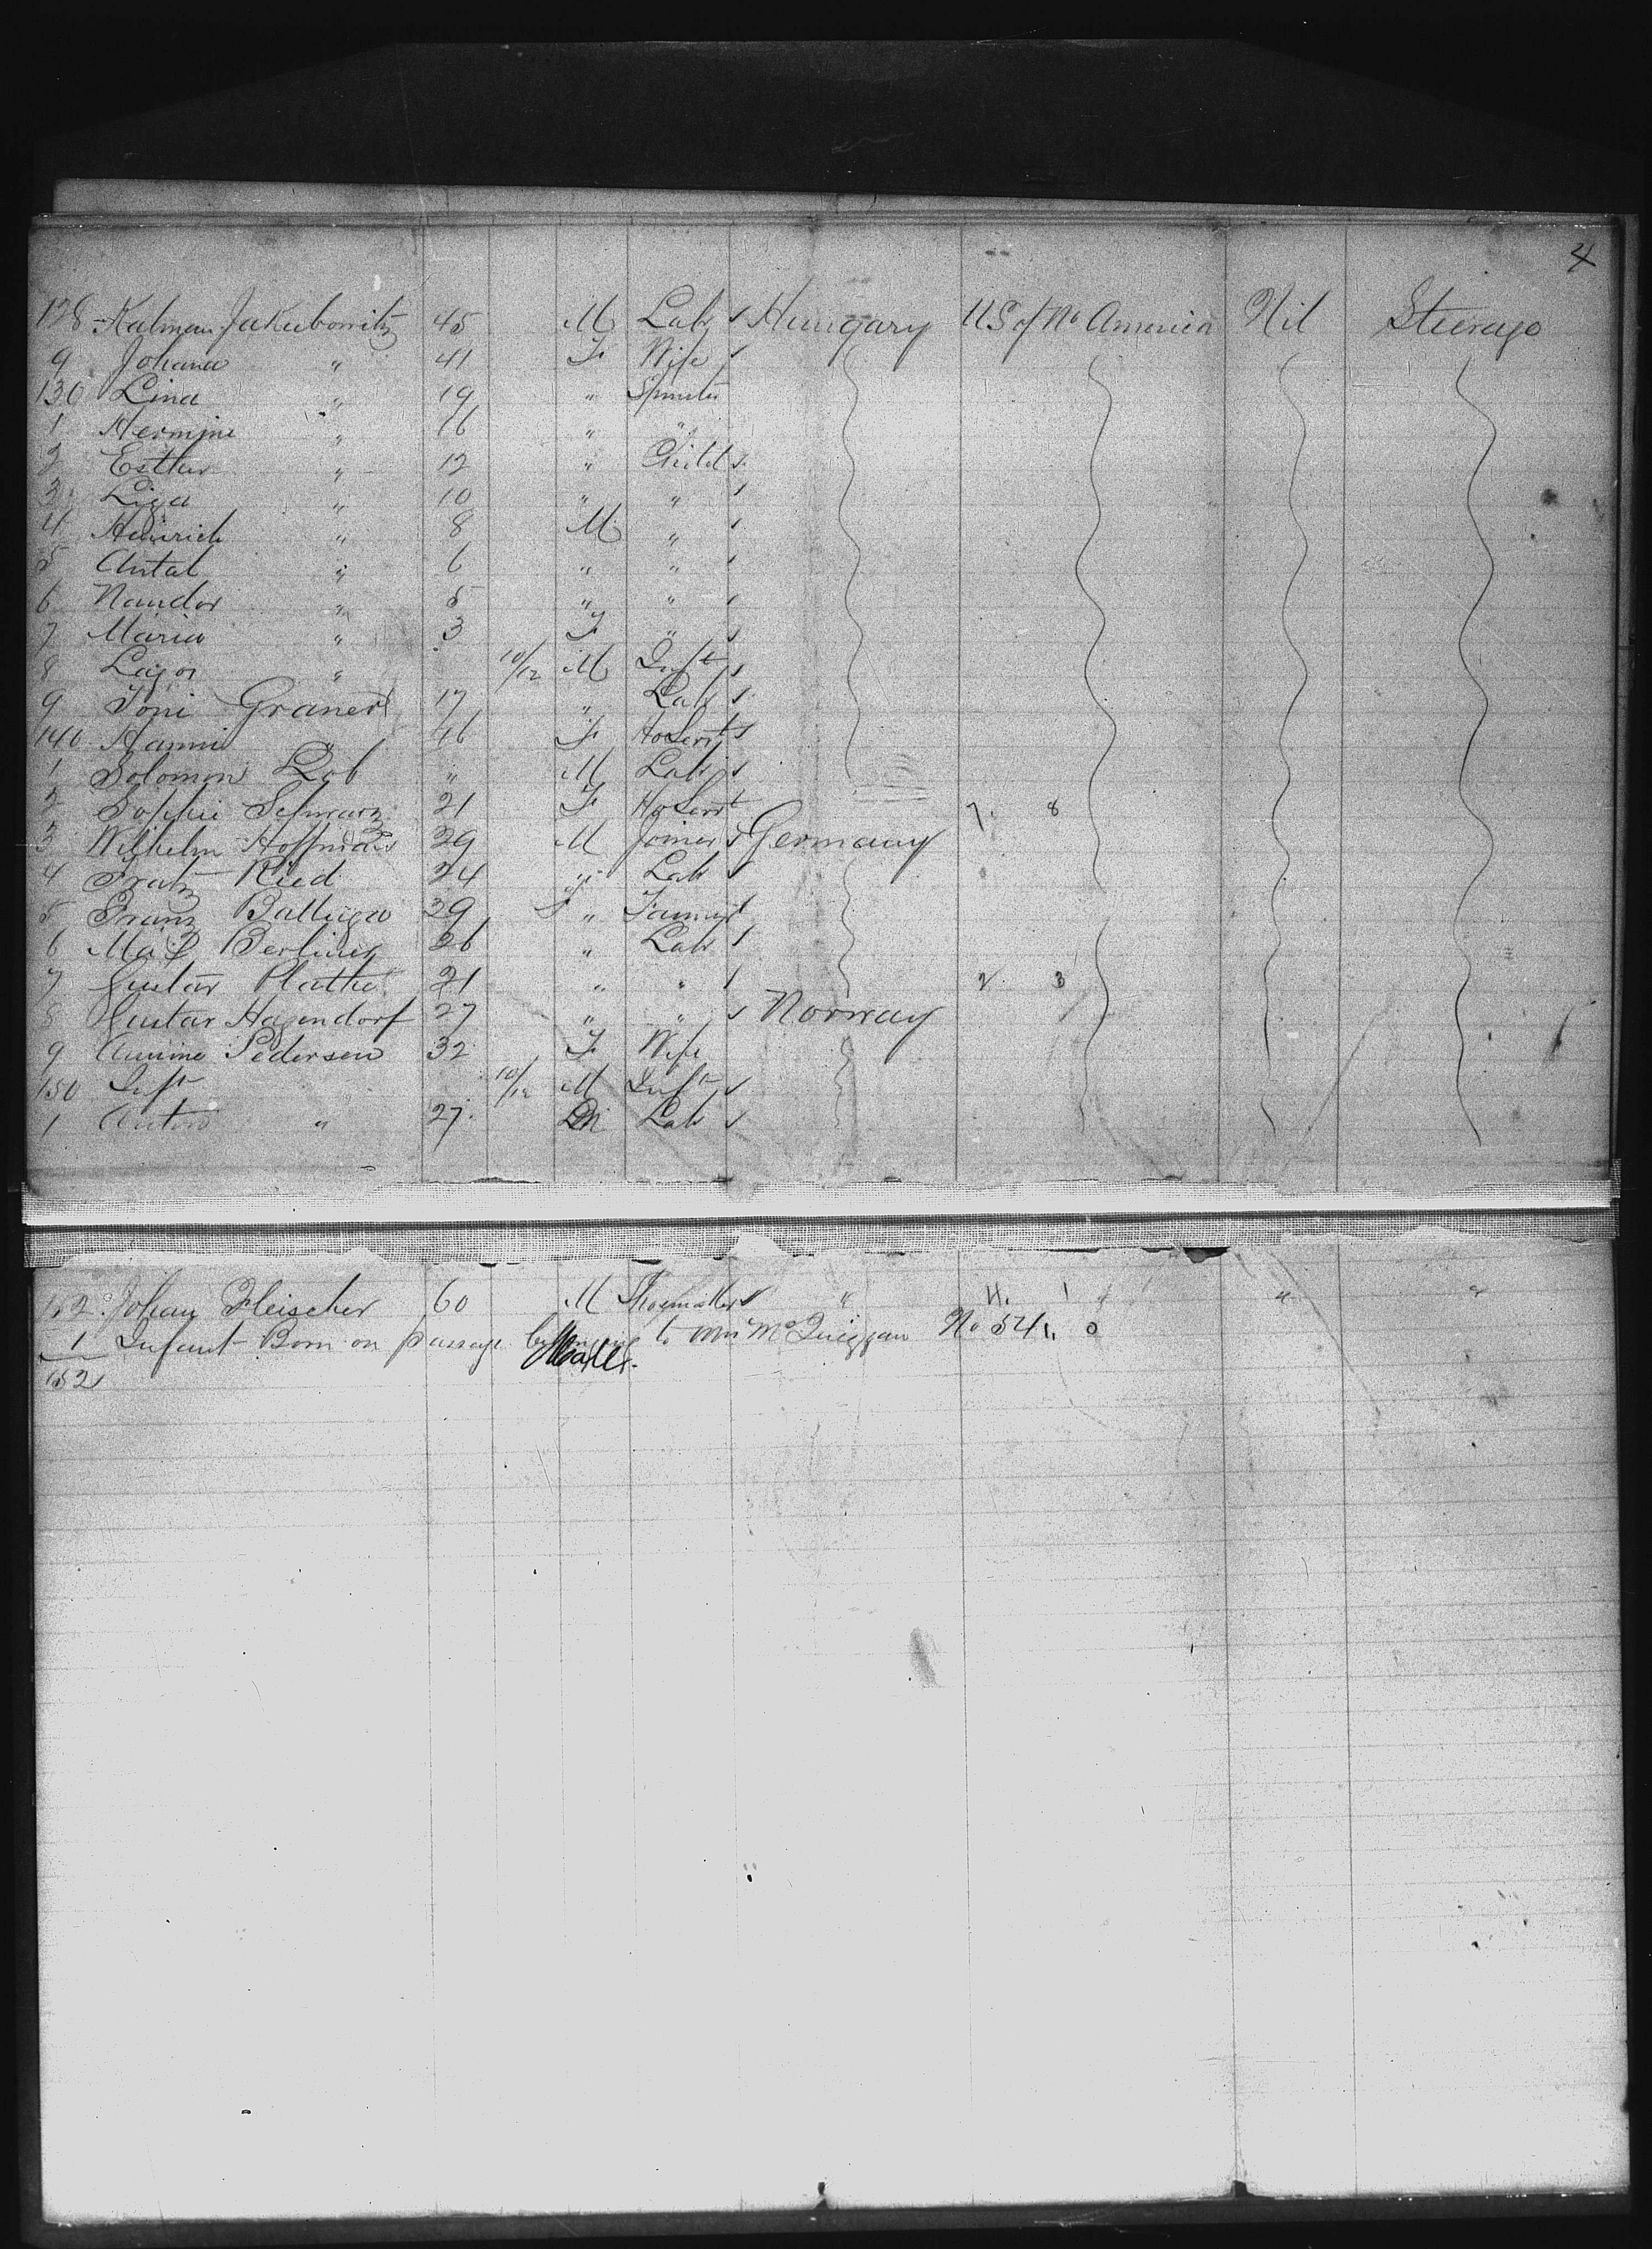 4
128 Kalman Jakubowitz 45 M Labr Hungary U S of No America Nil Steerage
9 Johana " 41 F Wife
130 Lina " 19 " Spinster
1 Hermine " 16 " "
2 Esther " 12 " Child
3 Liza " 10 " "
4 Heinrich " 8 M "
5 Antal " 6 " "
6 Nandor " 5 " "
7 Maria " 3 F "
8 " 10/12 M Inft
9 Toni Graner 17 " Labr
140 Hanni " 46 F Ho Servt
1 Solomon " M Labr
2 Sophie Schwarz 21 F Ho Servt 7. 8
3 Wilhelm Hoffman 29 M Joiner Germany
4 Ried 24 " Labr
5 Franz 29 "
6 Berliner 26 " Labr
7 Gustav Plathe 21 " " 2 3
8 Gustav Hagendorf 27 " " Norway
9 Pedersen 32 F Wife
150 Inft " 10/12 M Inft
1 Anton " 27 M Labr
152 Johan Fleischer 60 M Shoemaker " 4. 1 " " "
1 Infant Born on passage belonging to Mrs McQuiggan No 54
Male.
152